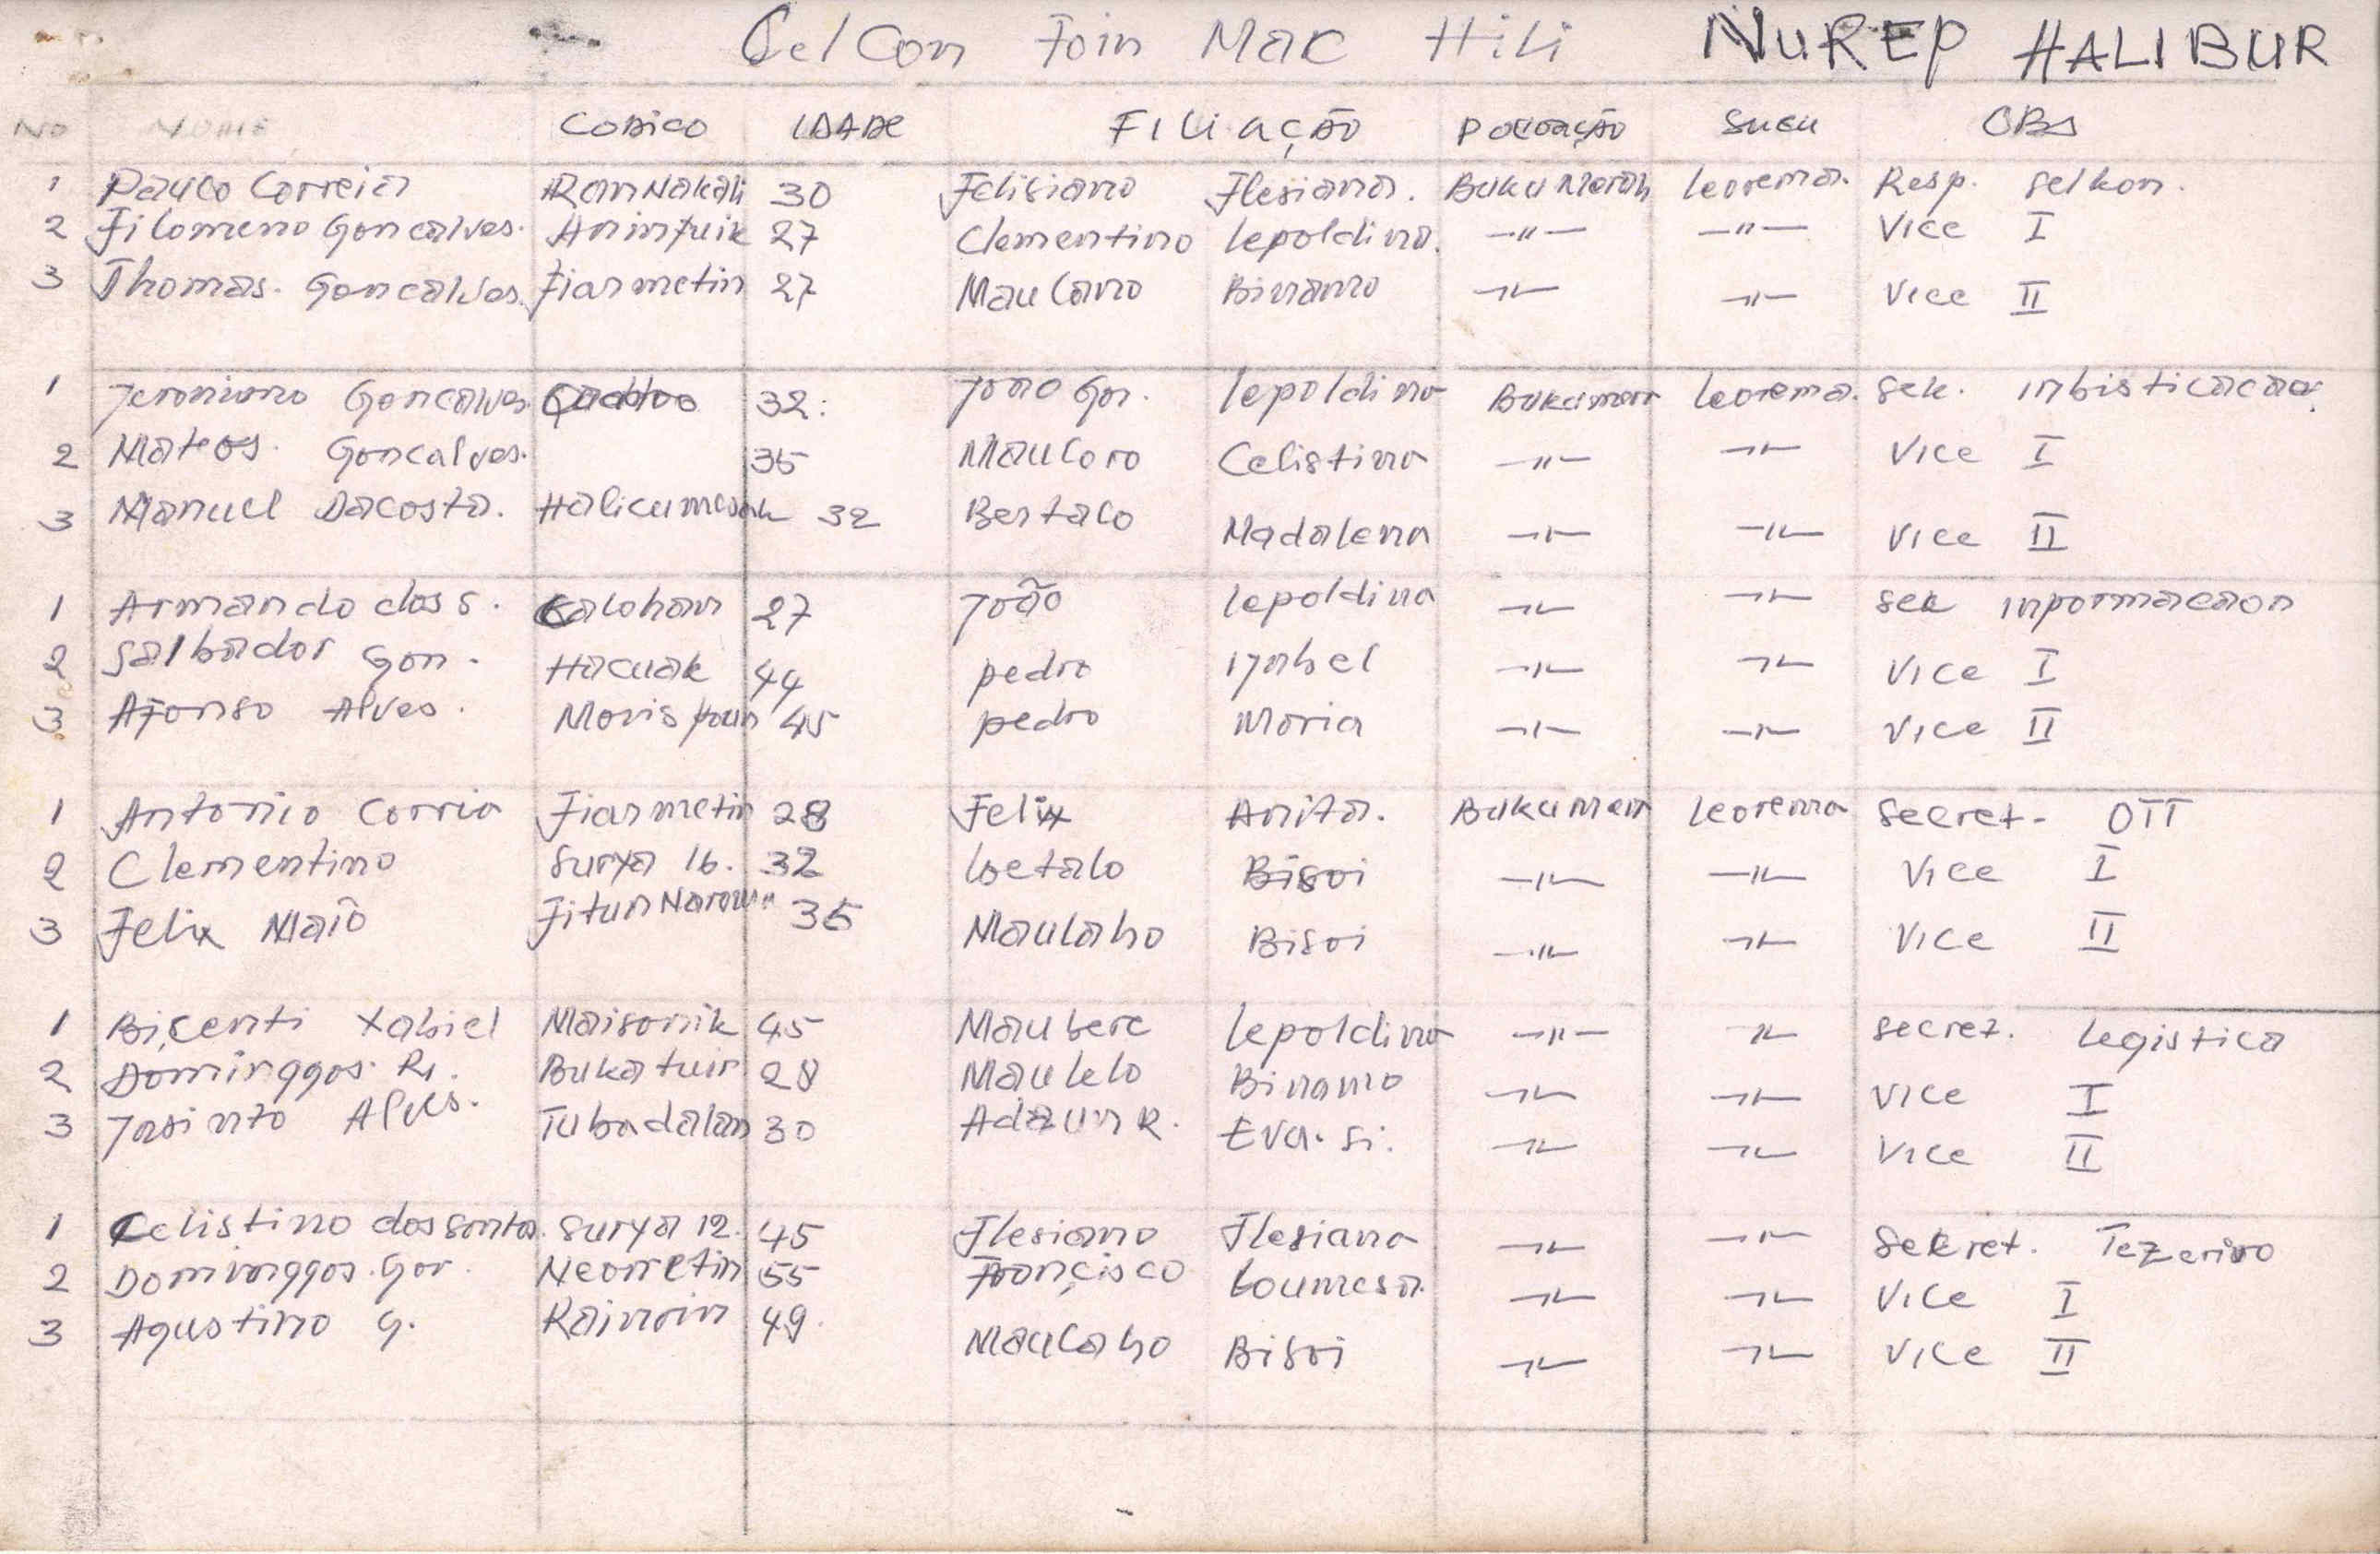 Celcon Foin Mak Hili NUREP HALIBUR
No NOME CODICO IDADE FILIAÇÃO POVOAÇÃO SUCU OBS
1 Paulo Correia RanNakali 30 Felisiano Flesiana. Leorema. Resp. selkon.
2 Filomeno Goncalves. Aninfuik 27 Clementino lepoldina. -"- -"- Vice I
3 Thomas. Goncalves. Fiarmetin 27 Maulano Binamo -"- -"- Vice II
1 Jeronimo Goncalves 32: João Gon. lepoldina Leorema. Sek. inbisticacao.
2 Mateos. Goncalves. 35 Mauloro Celistina -"- -"- Vice I
3 Manuel Dacosta. 32 Bertalo Madalena -"- -"- Vice II
1 Armando dos S. Kalohan 27 João lepoldina -"- -"- sek inpormacaon
2 Salbador Gon. Hacuak 44 pedro Izabel -"- -"- Vice I
3 Afonso Alves. 45 pedro Moria -"- -"- Vice II
1 Antonio Corria Fiarmetin 28 Felix Anita. Leorema Secret. OTT
2 Clementino Surya 16. 32 loetalo Bisoi -"- -"- Vice I
3 Felix Maîo 35 Maulaho Bisoi -"- -"- Vice II
1 Biçenti Xabiel Maisonik 45 Maubere lepoldina -"- -"- secret. Legistica
2 Dominggos. R. Bukatuir 28 Maulelo Binamo -"- -"- Vice I
3 Jasinto Alves. Tubadalan 30 R. Eva. si. -"- -"- Vice II
1 Celistino dos Santos. Surya 12. 45 Flesiano Flesiana -"- -"- Sekret. Tezeriro
2 Dominggos. Gon. Neonetin 55 Françisco Loumesa. -"- -"- Vice I
3 Agustino G. Rainoin 49. Maulaho Bisoi -"- -"- Vice II